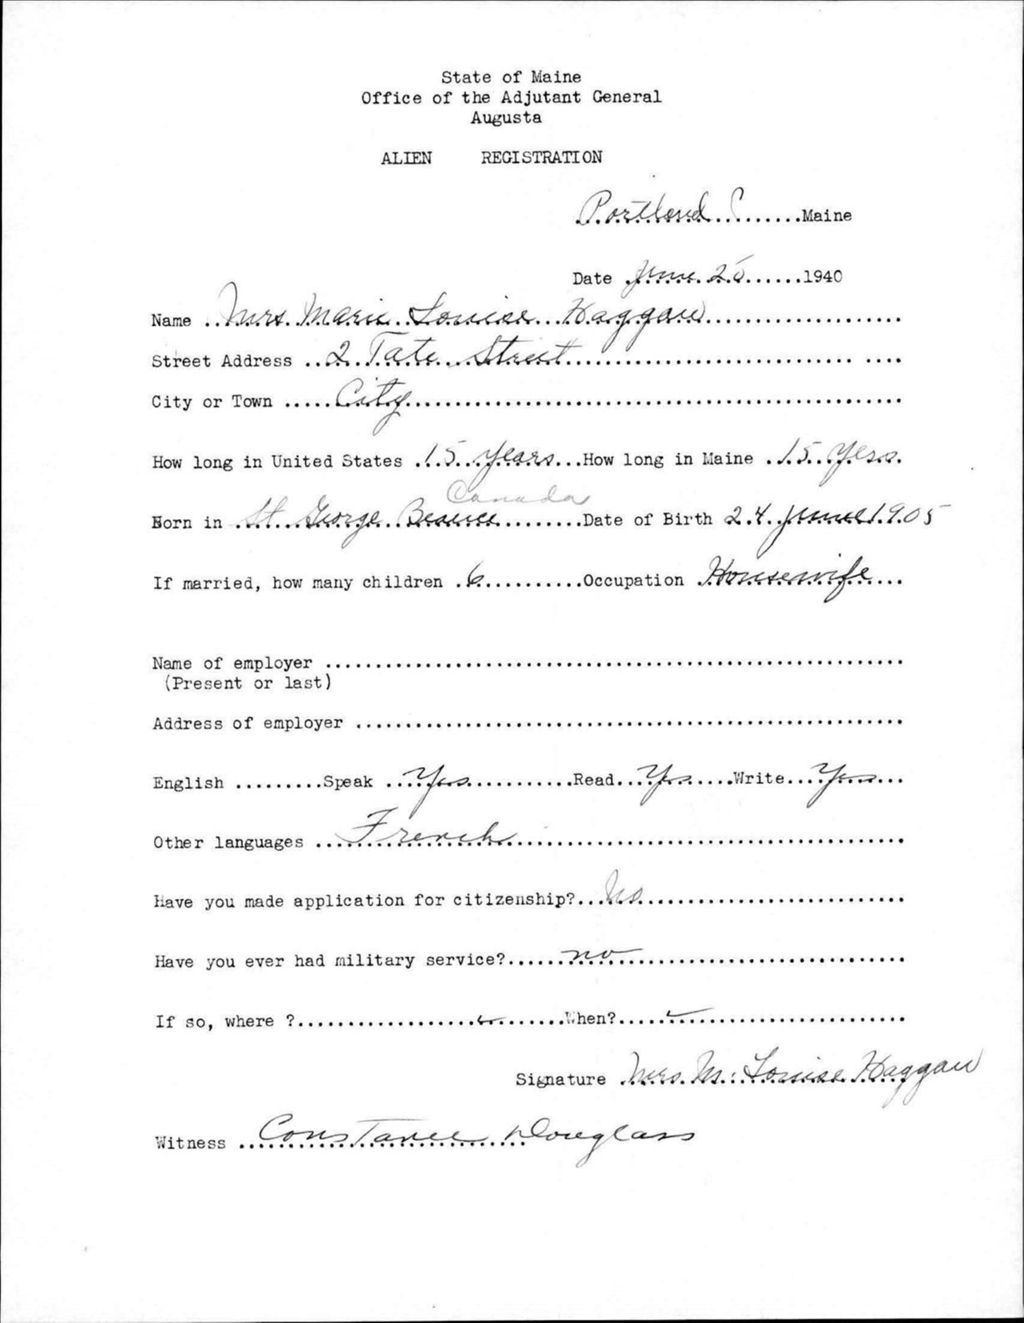 State of Maine
Office of the Adjutant General
Augusta
ALIEN REGISTRATION
Portland.......Maine
Date June......1940
Name ..Mrs. Marie Louise Haggan....................
Street Address ..2 Tate Street...........................
City or Town .....City.................................................
How long in United States .15 years...How long in Maine .15 yers.
Canada
Born in .St. George Beauce.........Date of Birth 24 June 1905
If married, how many children .6..........Occupation .Housewife...
Name of employer ..........................................................
(Present or last)
Address of employer .......................................................
English .........Speak ..Yes...........Read..Yes.....Write...Yes...
Other languages ...French.......................................
Have you made application for citizenship?...No..........................
Have you ever had military service?......no............................
If so, where ?...........................When?.............................
Signature Mrs. M. Louise Haggan
Witness ..Constance Douglass